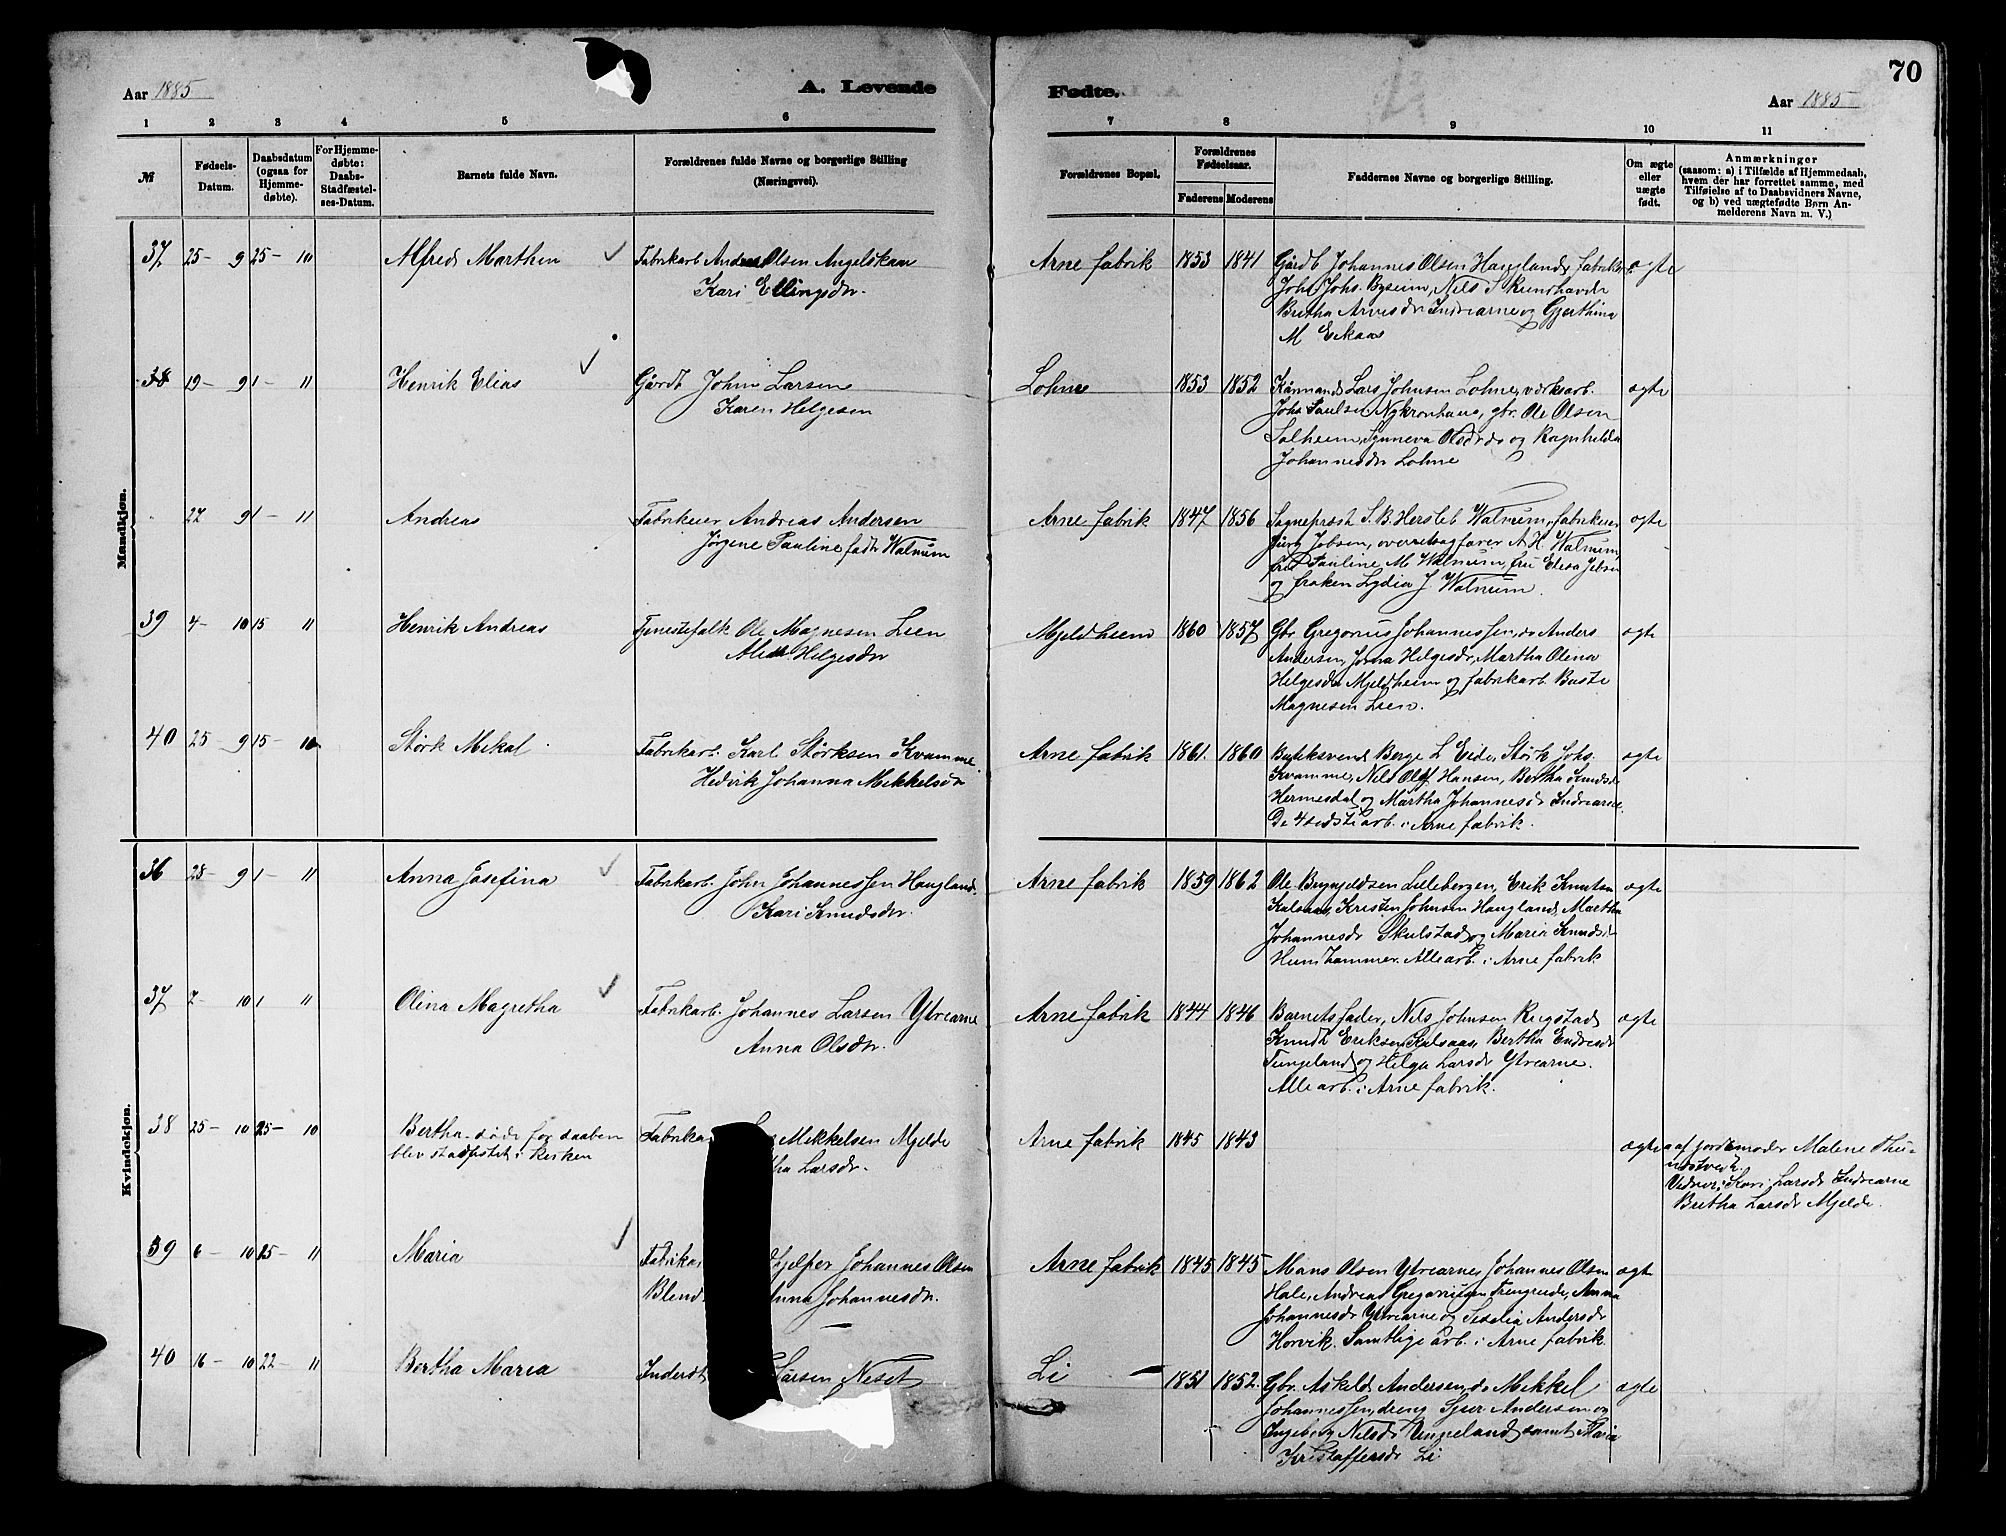 70
Aar 1885
A. Levende
Fødte.
Aar 1885
1 2 3 4 5 6 7 8 9 10 11
№
Fødsels-
Datum.
Daabsdatum
(ogsaa for
Hjemme-
døbte).
For Hjemme-
døbte:
Daabs-
Stadfæstel-
ses-Datum.
Barnets fulde Navn.
Forældrenes fulde Navne og borgerlige Stilling
(Næringsvei).
Forældrenes Bopæl.
Forældrenes
Fødselsaar.
Faderens Moderens
Faddernes Navne og borgerlige Stilling.
Om ægte
eller
uægte
født.
Anmærkninger
(saasom: a) i Tilfælde af Hjemmedaab,
hvem der har forrettet samme, med
Tilføielse af to Daabsvidners Navne,
og b) ved uægtefødte Børn An-
melderens Navn m. V.)
Mandkjøn.
37 25- 9 25- 10 Alfred Marthin Fabrikarb Anders Olsen Angelskaar
Kari Ellingsdr.
Arne fabrik 1853 1841 Gårdb. Johannes Olsen Haugland, fabrikarb.
Johs Johs. Byseim, Nils S Rundhovde
Bertha Arnesdr Indrearne og Gjerthina
M Eikaas
ægte
38 19- 9 1- 11 Henrik Elias Gårdb John Larsen
Karen Helgesen
Lohne 1853 1852 Kårmand Lars Johnsen Lohne, værksarb.
Johs Paulsen Nykronhaus, gbr. Ole Olsen
Solheim, Synneva Olsdr do og Ragnhilda
Johannesdr Lohne
ægte
27 9 1- 11 Andreas Fabrikeier Andreas Andersen
Jørgene Pauline født Walnum
Arne fabrik 1847 1856 Sogneprest S. B. Hersleb Walnum, fabrikeier
Jürg Jebsen, overretsagfører A H. Walnum,
fru Pauline M Walnum, fru Elisa Jebsen
og frøken Lydia J. Walnum.
ægte
39 4- 10 15 11 Henrik Andreas Tjenestefolk Ole Magnesen Lien
Helgesdr
Mjeldheim 1860 1857 Gbr Gregorius Johannessen, do Anders
Andersen, Jorna Helgesdr, Martha Olina
Helgesdr Mjeldheim og fabrikarb. Baste
Magnesen Lien.
ægte
40 25 9 15- Størk Mikal Fabrikarb. Karl Størksen Kvamme
Hedvik Johanna Mikkelsdr
Arne fabrik 1861. 1860 Butiksvend Berge L Eide, Størk Johs.
Kvamme, Nils Olaf Hansen, Bertha Knudsdr
Hermesdal og Martha Johannesdr Indrearne.
De 4 sidste arb. i Arne fabrik.
ægte
Kvindekjøn.
36 28- 9 1- 11 Anna Josefina Fabrikarb. John Johannessen Haugland.
Kari Knudsdr.
Arne fabrik 1859 1862 Ole Brynjeldsen Lillebergen, Erik Knutsen
Kalsaas, Kristen Johnsen Haugland, Martha
Johannesdr Skulstad og Maria Knudsdr
Hums hammer. Alle arb. i Arne fabrik
ægte
37 7- 10 1 11 Olina Magretha Fabrikarb. Johannes Larsen Ytrearne
Anna Olsdr.
Arne fabrik 1844 1846 Barnets fader, Nils Johnsen Rugstad
Knudt Eriksen Kalsaas, Bertha Endresdr
Tungeland og Helga Larsdr Ytrearne.
Alle arb. i Arne fabrik.
ægte
38 25- 10 25- 10 Bertha, døde før daaben
blev stadfstet i kirken
Fabrika Mikkelsen Mjelde
tha Larsdr.
Arne fabrik 1845 1843
ægte af jordemoder Malene Thu-
nestvedt.
Vidner: Kari Larsdr Indrearne
Bertha Larsdr Mjelde.
39 6- 10 25- 11 Maria Fabrika hjelper Johannes Olsen
Blend nna Johannesdr.
Arne fabrik 1845 1845 Mons Olsen Ytrearne, Johannes Olsen
Hale, Andreas Gregoriusen Trengreide, Anna
Johannesdr Ytrearne og Seselia Andersdr
Horvik. Samtlige arb. i Arne fabrik.
ægte
40 16- 10 22- 11 Bertha Maria Inderst Larsen Neset
Li 1851 1852. Gbr. Askeld Andersen, do Mikkel
Johannessen, dreng Sjur Andersen og
Ingeborg Nilsdr Ungeland, samt Maria
Kristoffersdr Li
ægte